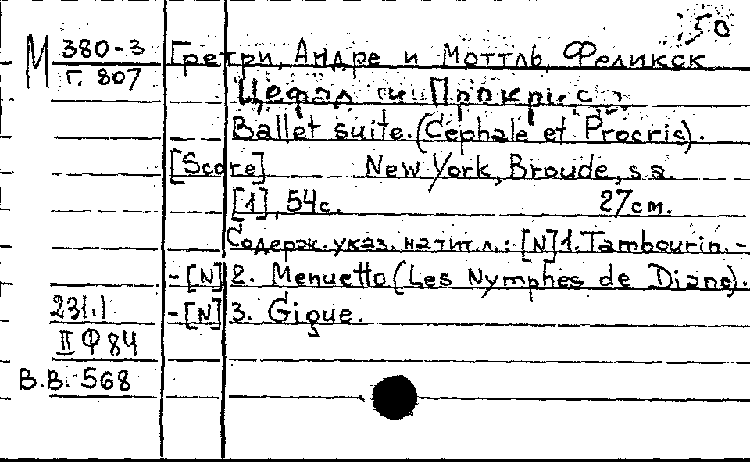 50
М 380-3 Гретри, Андре и Моттль, Феликск
Г. 807
Цефал и Прокрис
Ballet suite. (Cephale et Procris).
[Score] New York, Broude, s.a.
[1], 54с. 27см.
Содерж. указ. на тит. л.: [N] 1. Tambourin. -
- [N] 2. Menuetto (Les Nymphes de Diane).
231.1 - [N] 3. Gigue.
II Ф 84
В.В. 568